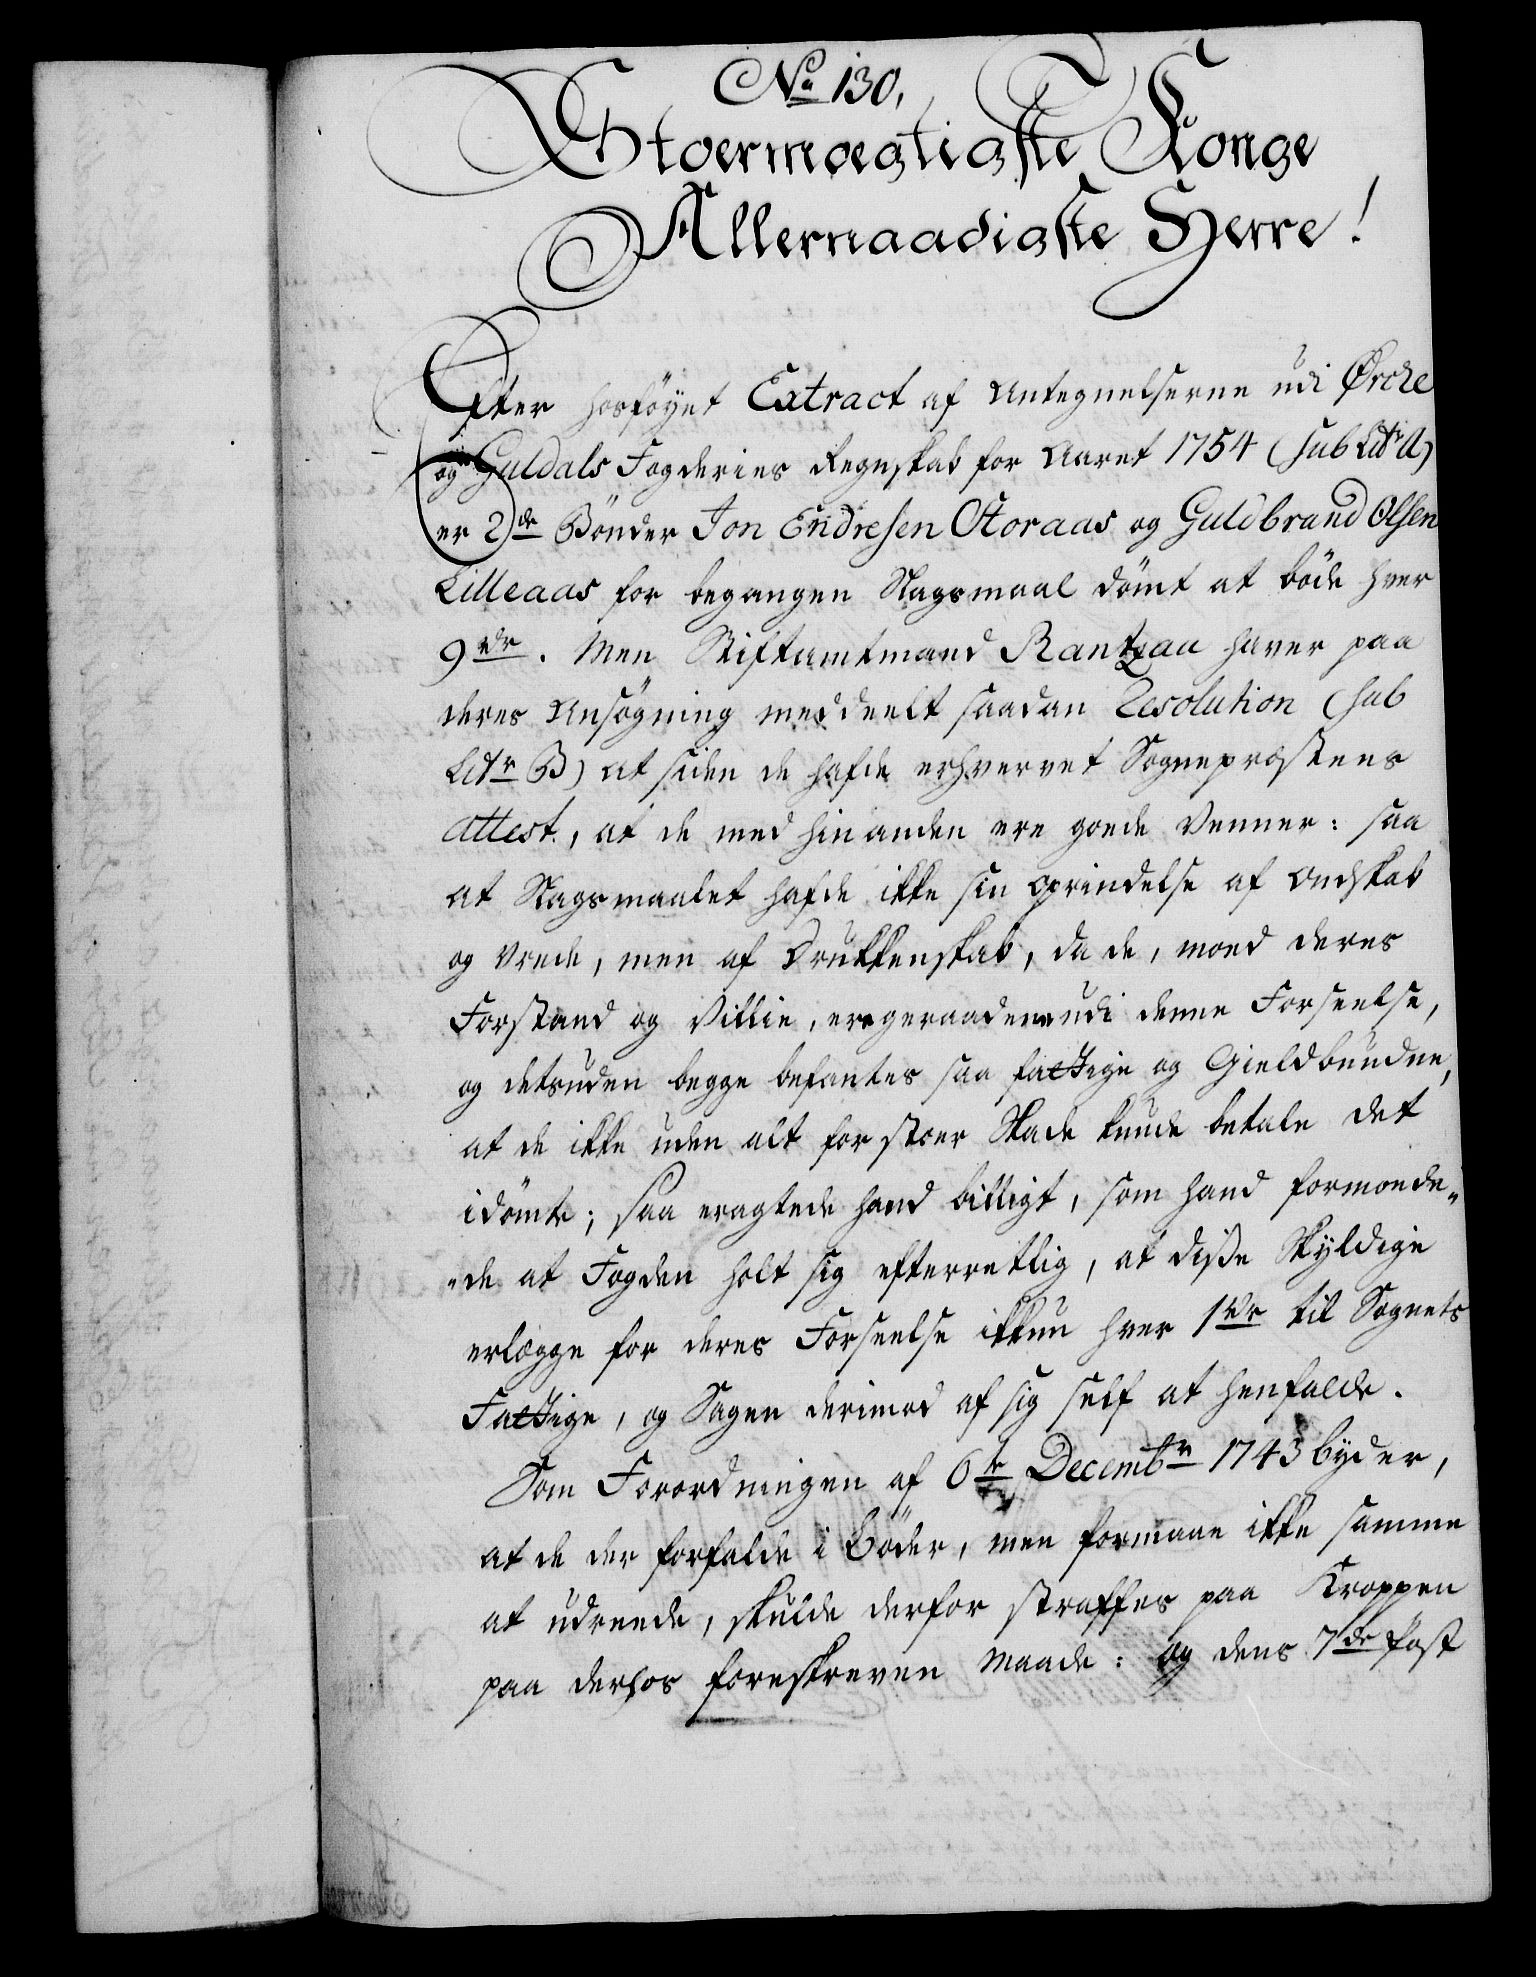 No 130,
Stoermægtigste Konge
Allernaadigste Herre!
Efter hosföyet Extract af Antegnelserne udi Örche
og Guldals Fogderies Regnskab for Aaret 1754 (sub Litr A)
er 2de Bönder Jon Endresen Storaas og Guldbrand Olsen
Lilleaas for begangen Slagsmaal dömt at böde hver
9 rdr. Men Stiftamtmand Rantzau haver paa
deres Ansögning meddeelt saadan Resolution (sub
Litr B) at siden de hafde erhvervet Sognepræstens
Attest, at de med hinanden ere goede Venner: saa
at Slagsmaalet hafde ikke sin Oprindelse af Ondskab
og Vrede, men af Drukkenskab, da de, moed deres
Forstand og Villie, ere geraadene udi denne Forseelse,
og desuden begge befantes saa fattige og Gieldbundne,
at de ikke uden alt for stoer Skade kunde betale det
idömte; saa eragtede hand billigt, som hand formeende„
„de at Fogden holt sig efterretlig, at disse Skyldige
erlægge for deres Forseelse ikkun hver 1 rdr til Sognets
Fattige, og Sagen derimod af sig self at henfalde.
Som Forordningen af 6te Decembr 1743 byder,
at de der forfalde i Böder, men formaae ikke samme
at udreede, skulde derfor straffes paa Kroppen
paa derhos foreskreven Maade: og dens 7de Post